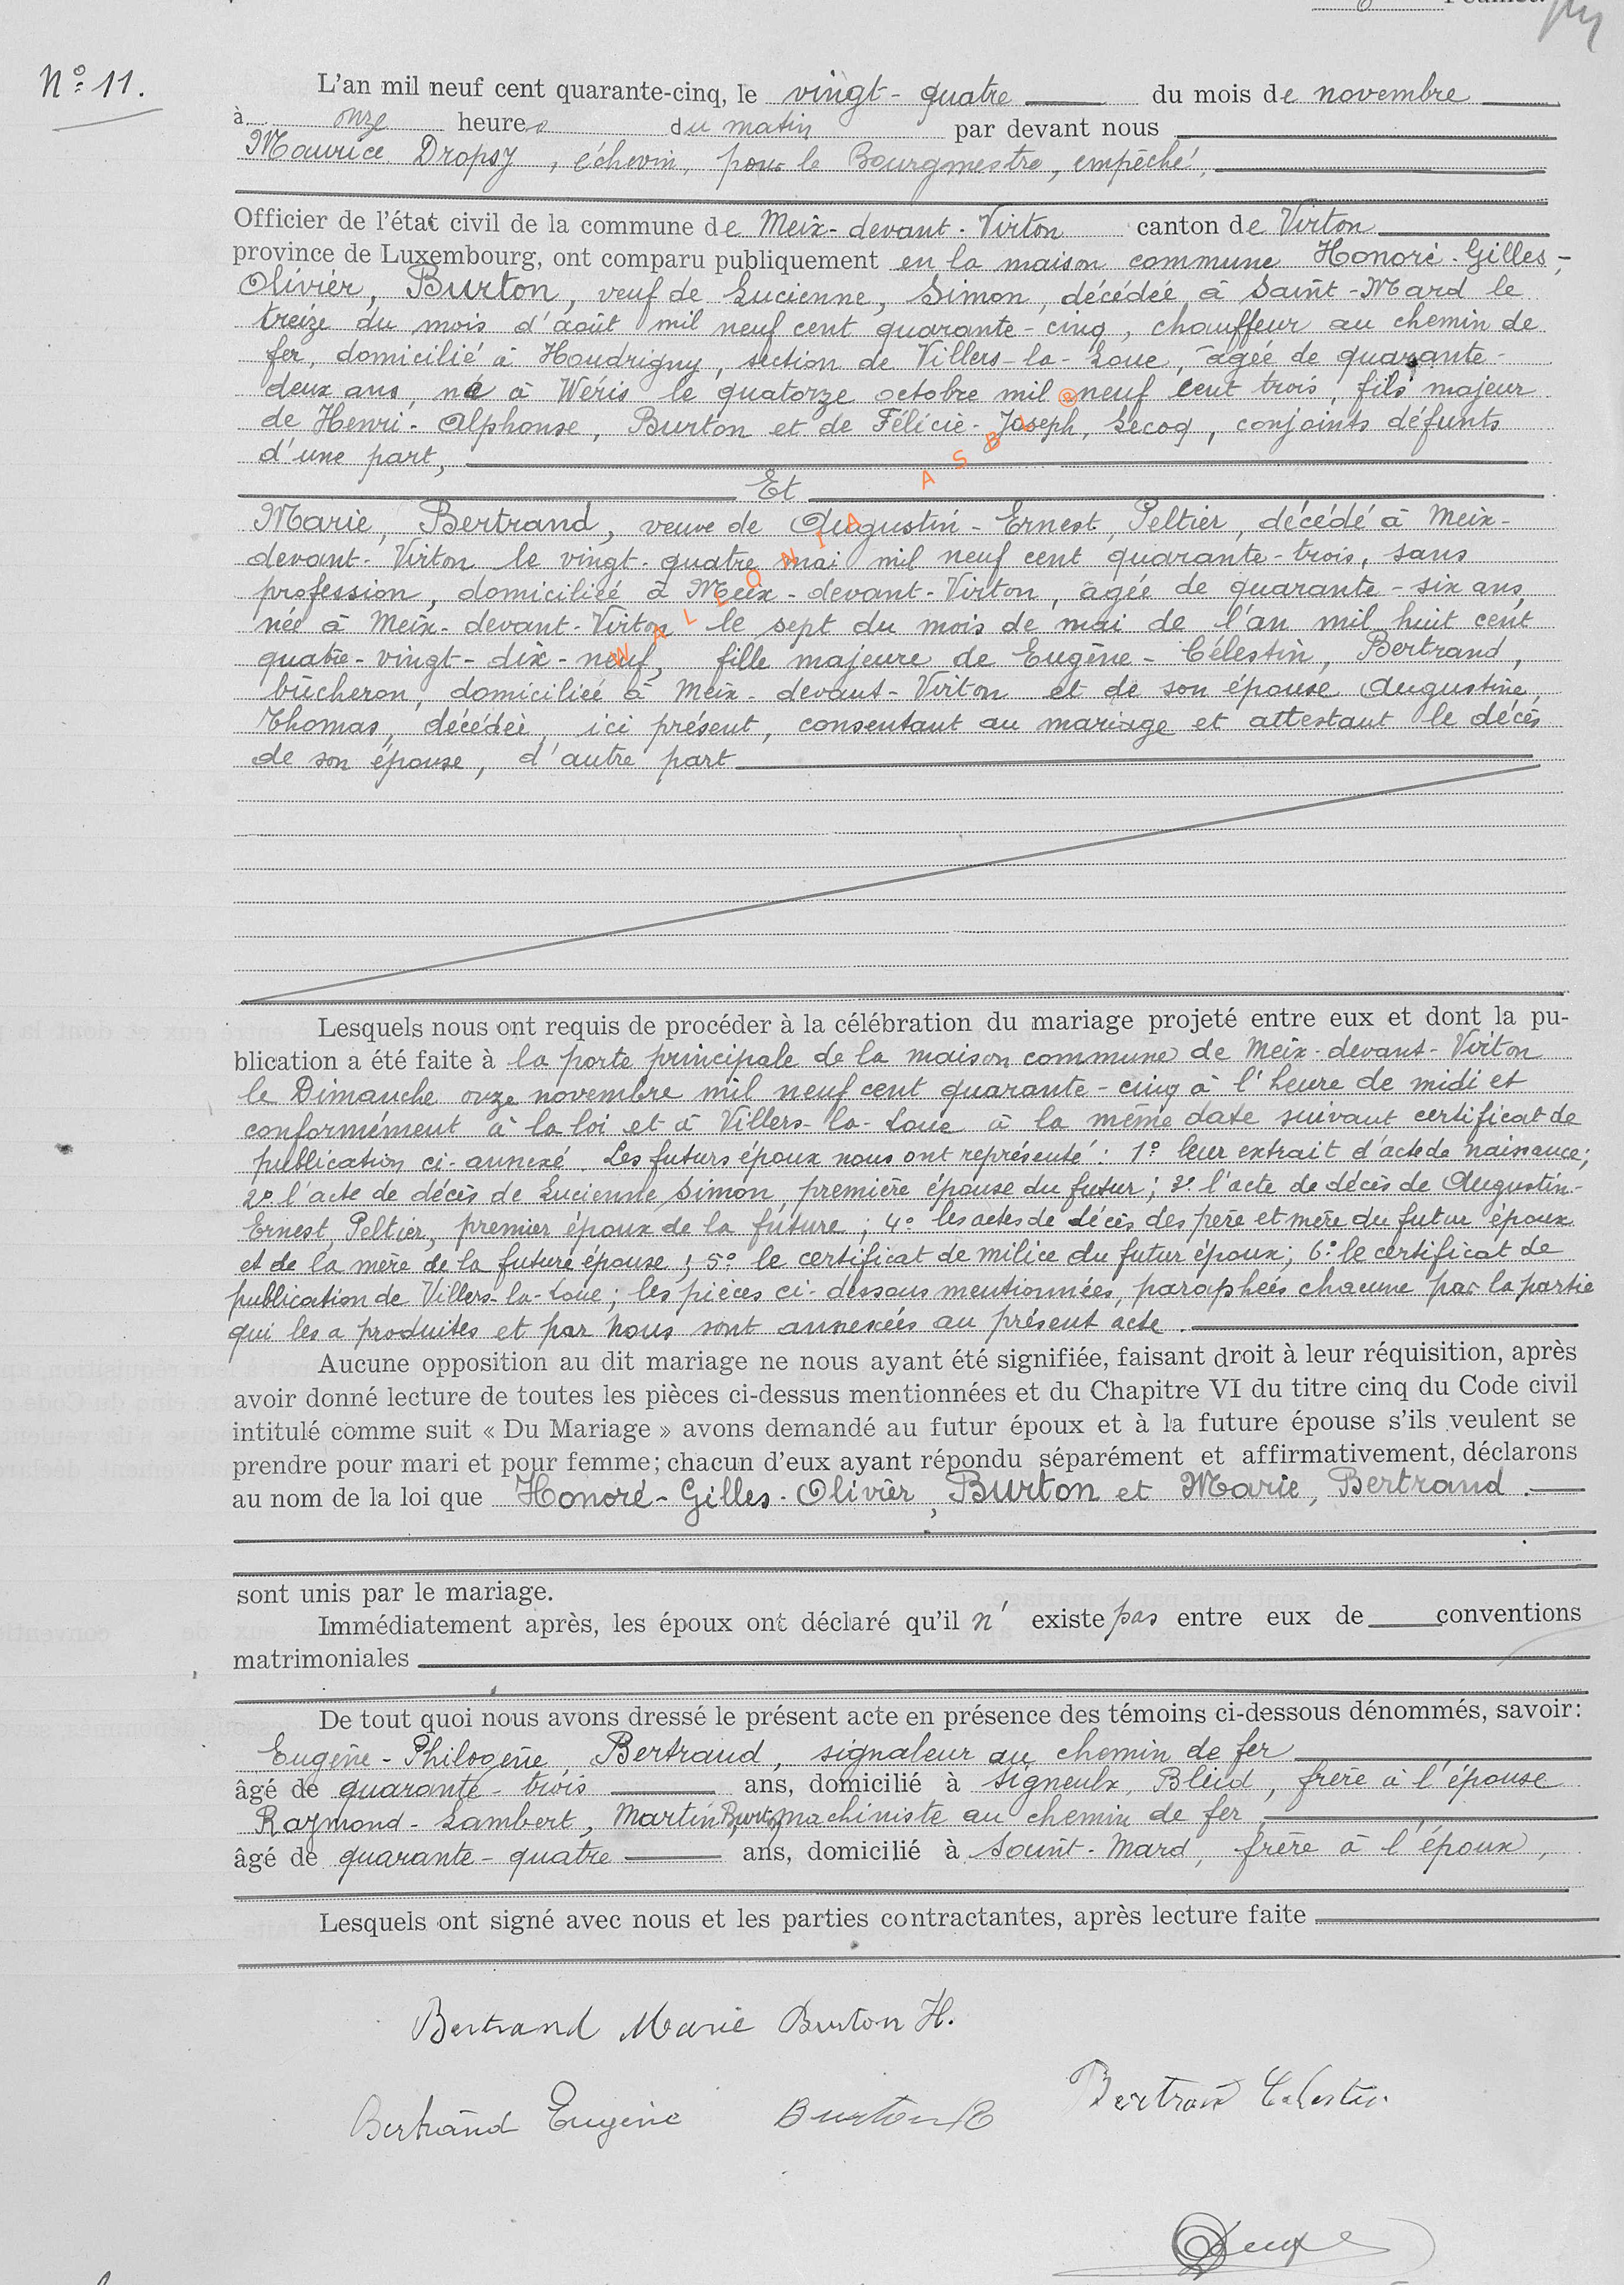 Feuillet.
N° 11.
L'an mil neuf cent quarante-cinq, le vingt-quatre du mois de novembre
à onze heures du matin par devant nous
Maurice Dropsy, échevin, pour le Bourgmestre, empêché,
Officier de l'état civil de la commune de Meix-devant-Virton canton de Virton
province de Luxembourg, ont comparu publiquement en la maison commune Honoré-Gilles-
Olivier, Burton, veuf de Lucienne, Simon, décédée à Saint-Mard le
treize du mois d'août mil neuf cent quarante-cinq, chauffeur au chemin de
fer, domicilié à Houdrigny, section de Villers-la-Loue, âgée de quarante-
deux ans, né à Wéris le quatorze octobre mil neuf cent trois, fils majeur
de Henri-Alphonse, Burton et de Félicie-Joseph, Lecoq, conjoints défunts
d'une part,
Et
Marie, Bertrand, veuve de Augustin-Ernest, Peltier, décédé à Meix-
devant-Virton le vingt-quatre mai mil neuf cent quarante-trois, sans
profession, domiciliée à Meix-devant-Virton, âgée de quarante-six ans,
née à Meix-devant-Virton le sept du mois de mai de l'an mil huit cent
quatre-vingt-dix-neuf, fille majeure de Eugène-Célestin, Bertrand,
bûcheron, domiciliée à Meix-devant-Virton et de son épouse Augustine,
Thomas, décédée, ici présent, consentant au mariage et attestant le décès
de son épouse, d'autre part
WALLONIA ASBL ®
Lesquels nous ont requis de procéder à la célébration du mariage projeté entre eux et dont la pu-
blication a été faite à la porte principale de la maison commune de Meix-devant-Virton
le Dimanche onze novembre mil neuf cent quarante-cinq à l'heure de midi et
conformément à la loi et à Villers-la-Loue à la même date suivant certificat de
publication ci-annexé. Les futurs époux nous ont représenté : 1° leur extrait d'acte de naissance;
2° l'acte de décès de Lucienne Simon, première épouse du futur; 3° l'acte de décès de Augustin-
Ernest, Peltier, premier époux de la future; 4° les actes de décès des père et mère du futur époux
et de la mère de la future épouse; 5° le certificat de milice du futur époux; 6° le certificat de
publication de Villers-la-Loue; les pièces ci-dessous mentionnées, paraphées chacune par la partie
qui les a produites et par nous sont annexées au présent acte.
Aucune opposition au dit mariage ne nous ayant été signifiée, faisant droit à leur réquisition, après
avoir donné lecture de toutes les pièces ci-dessus mentionnées et du Chapitre VI du titre cinq du Code civil
intitulé comme suit « Du Mariage » avons demandé au futur époux et à la future épouse s'ils veulent se
prendre pour mari et pour femme; chacun d'eux ayant répondu séparément et affirmativement, déclarons
au nom de la loi que Honoré-Gilles-Olivier, Burton et Marie, Bertrand.
sont unis par le mariage.
Immédiatement après, les époux ont déclaré qu'il n'existe pas entre eux de conventions
matrimoniales
De tout quoi nous avons dressé le présent acte en présence des témoins ci-dessous dénommés, savoir:
Eugène-Philogène, Bertrand, signaleur au chemin de fer
âgé de quarante-trois ans, domicilié à Signeulx, Bleid, frère à l'épouse
Raymond-Lambert, Martin Burton machiniste au chemin de fer
âgé de quarante-quatre ans, domicilié à Saint-Mard, frère à l'époux,
Lesquels ont signé avec nous et les parties contractantes, après lecture faite
Bertrand Marie Burton H.
Bertrand Celestin
Bertrand Eugène Burton R